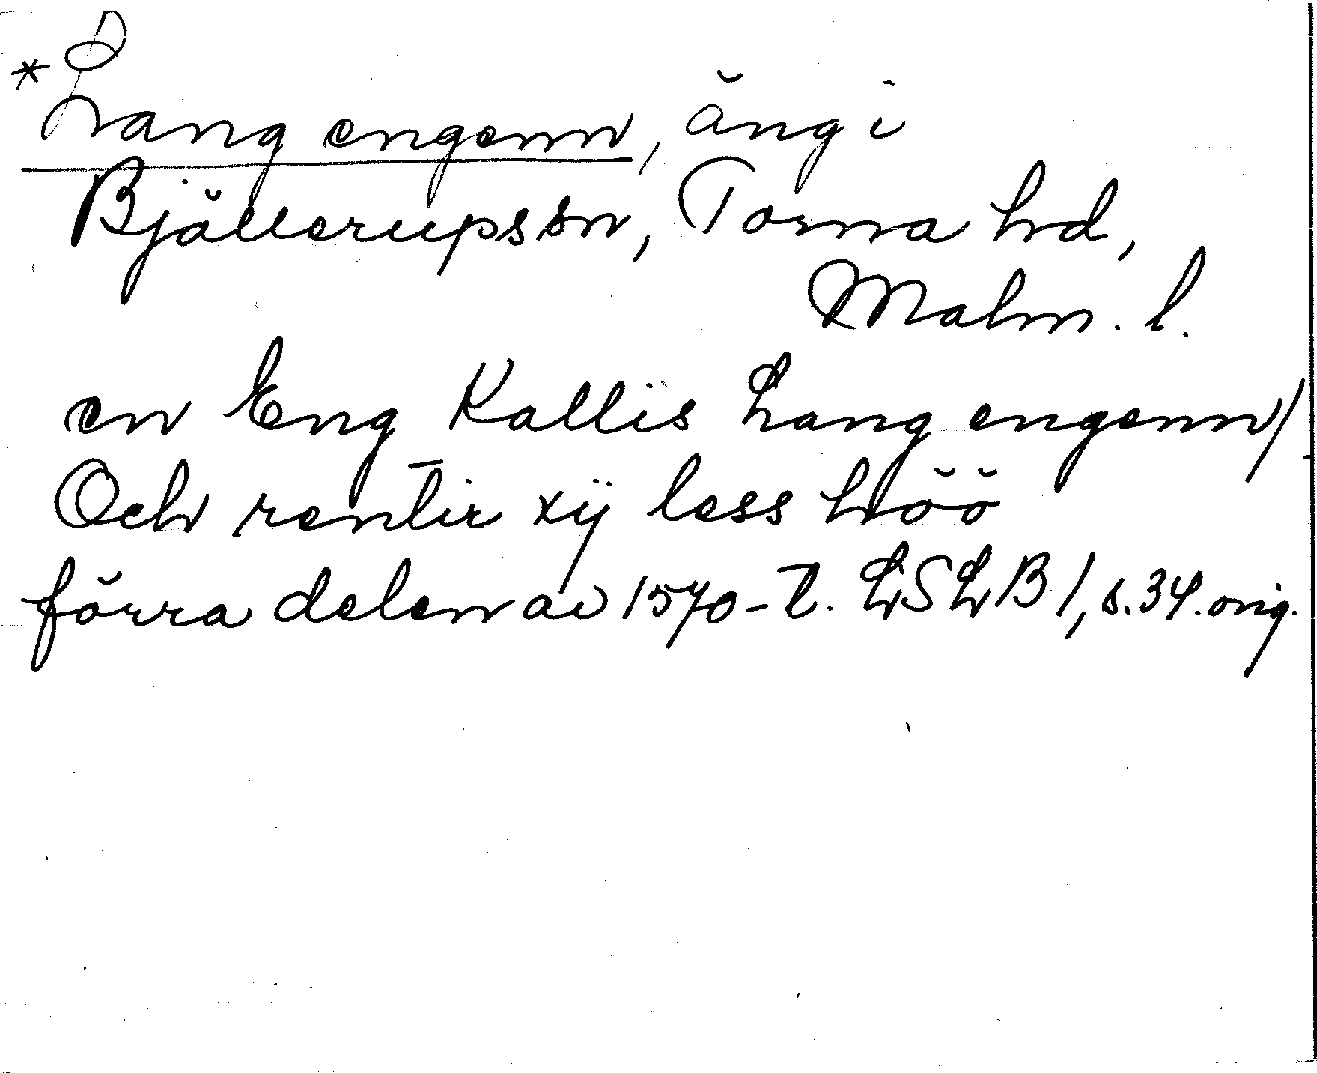 *Lang engenn, äng i
Bjällerups sn, Torna hd,
Malm. l.
en Eng Kallis Lang engenn/
Och rentir xij less höö
förra delen av 1570-t. LSLB 1, s. 34. orig.